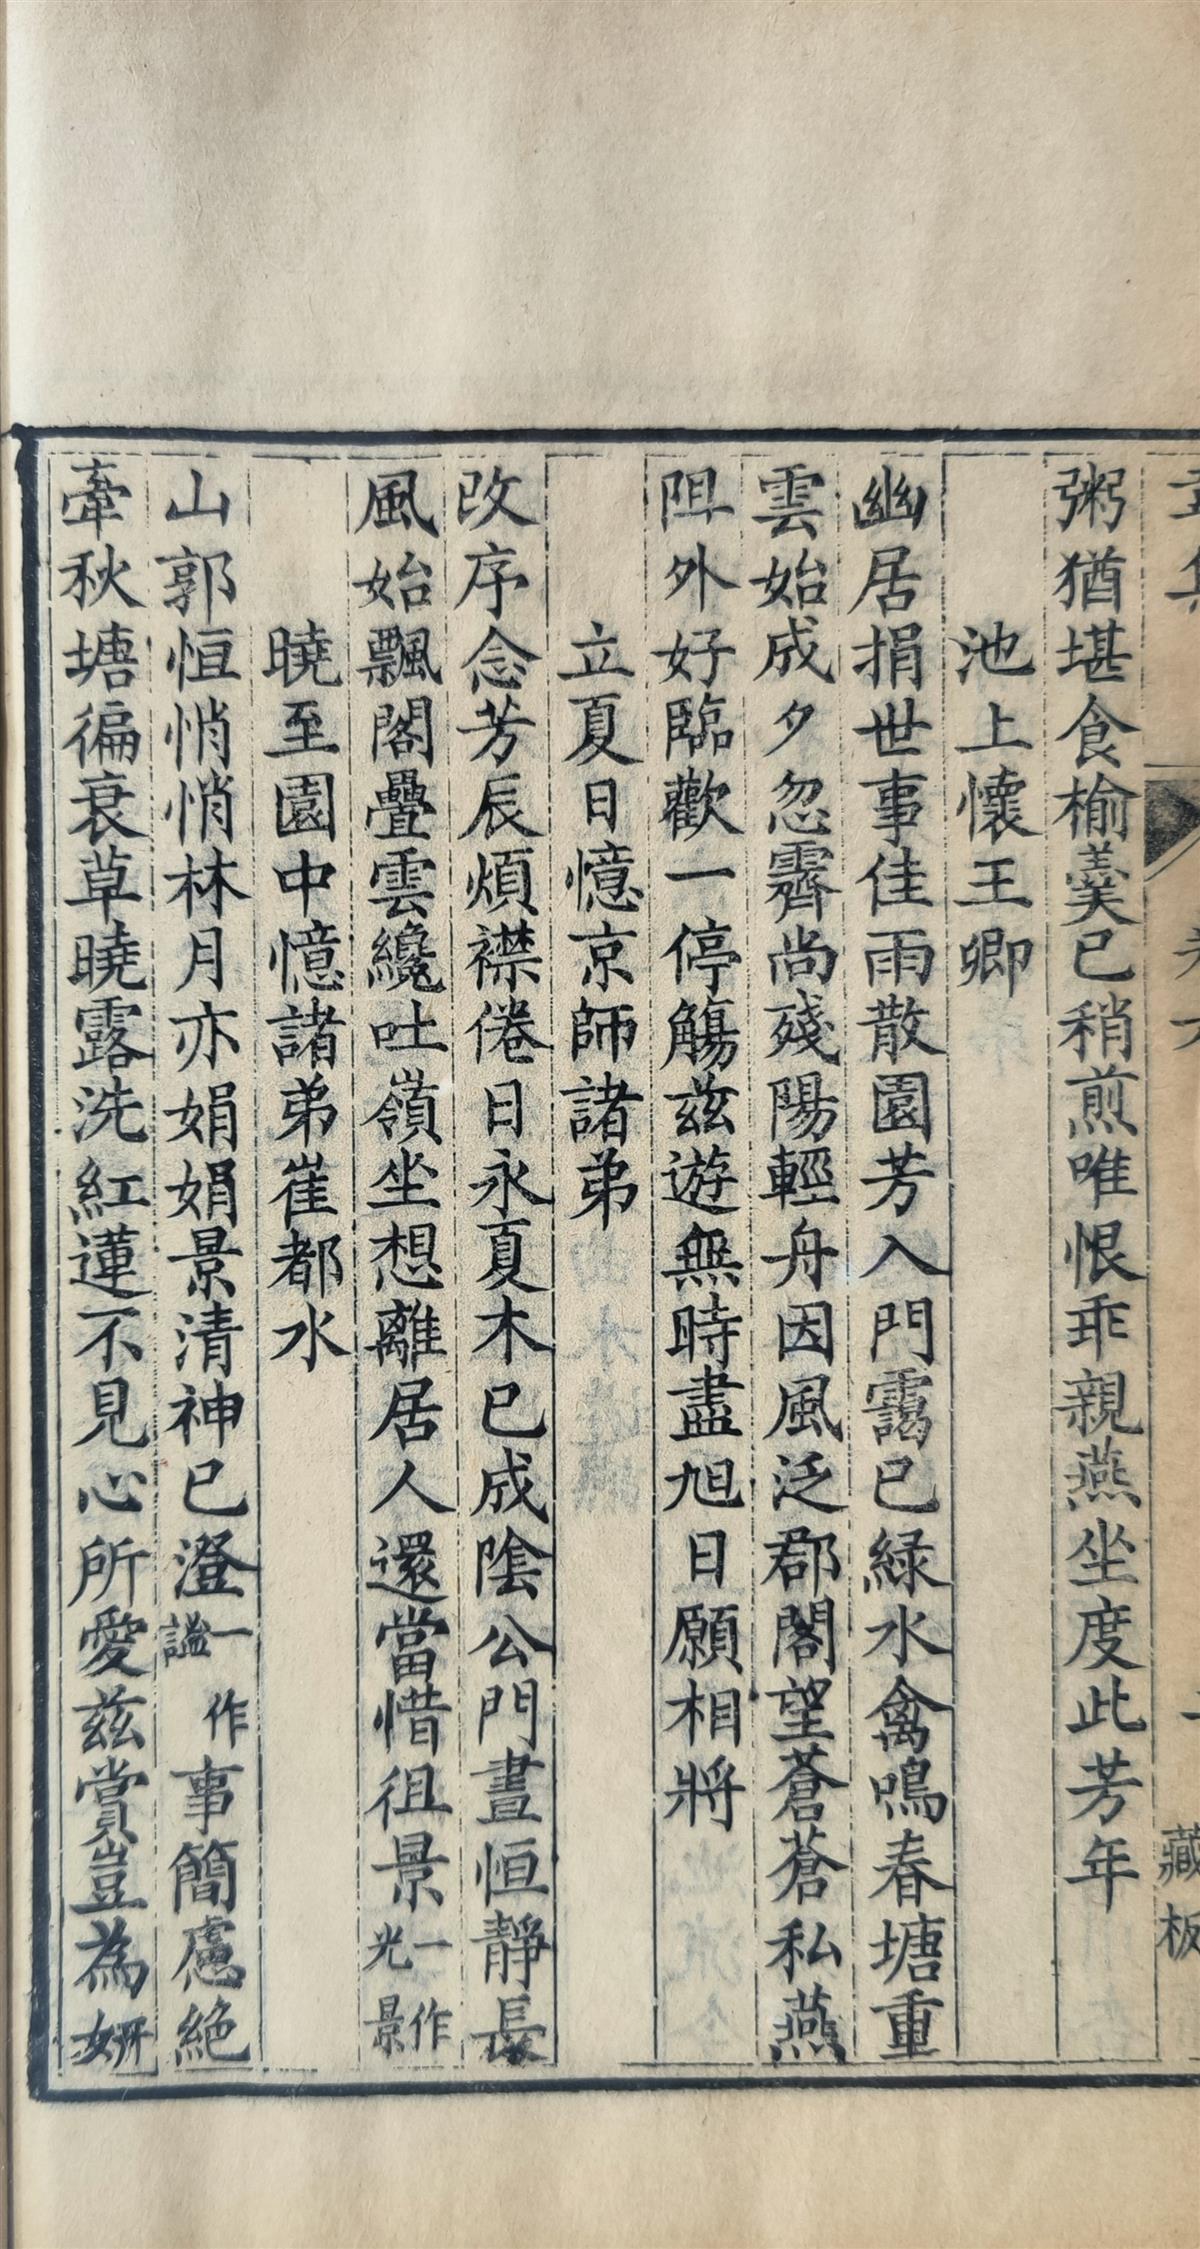 粥猶堪食榆羹已稍煎唯恨乖親燕坐度此芳年
池上懷王卿
幽居捐世事佳雨散園芳入門靄已綠水禽鳴春塘重
雲始成夕忽霽尚殘陽輕舟因風泛郡閣望蒼蒼私燕
阻外好臨歡一停觴茲遊無時盡旭日願相將
立夏日憶京師諸弟
改序念芳辰煩襟倦日永夏木已成陰公門晝恒靜長
風始飄閣疊雲纔吐嶺坐想離居人還當惜徂景一作光景
曉至園中憶諸弟崔都水
山郭恒悄悄林月亦娟娟景清神已澄一作謐事簡慮絕
牽秋塘徧衰草曉露洗紅蓮不見心所愛茲賞豈為妍
藏板